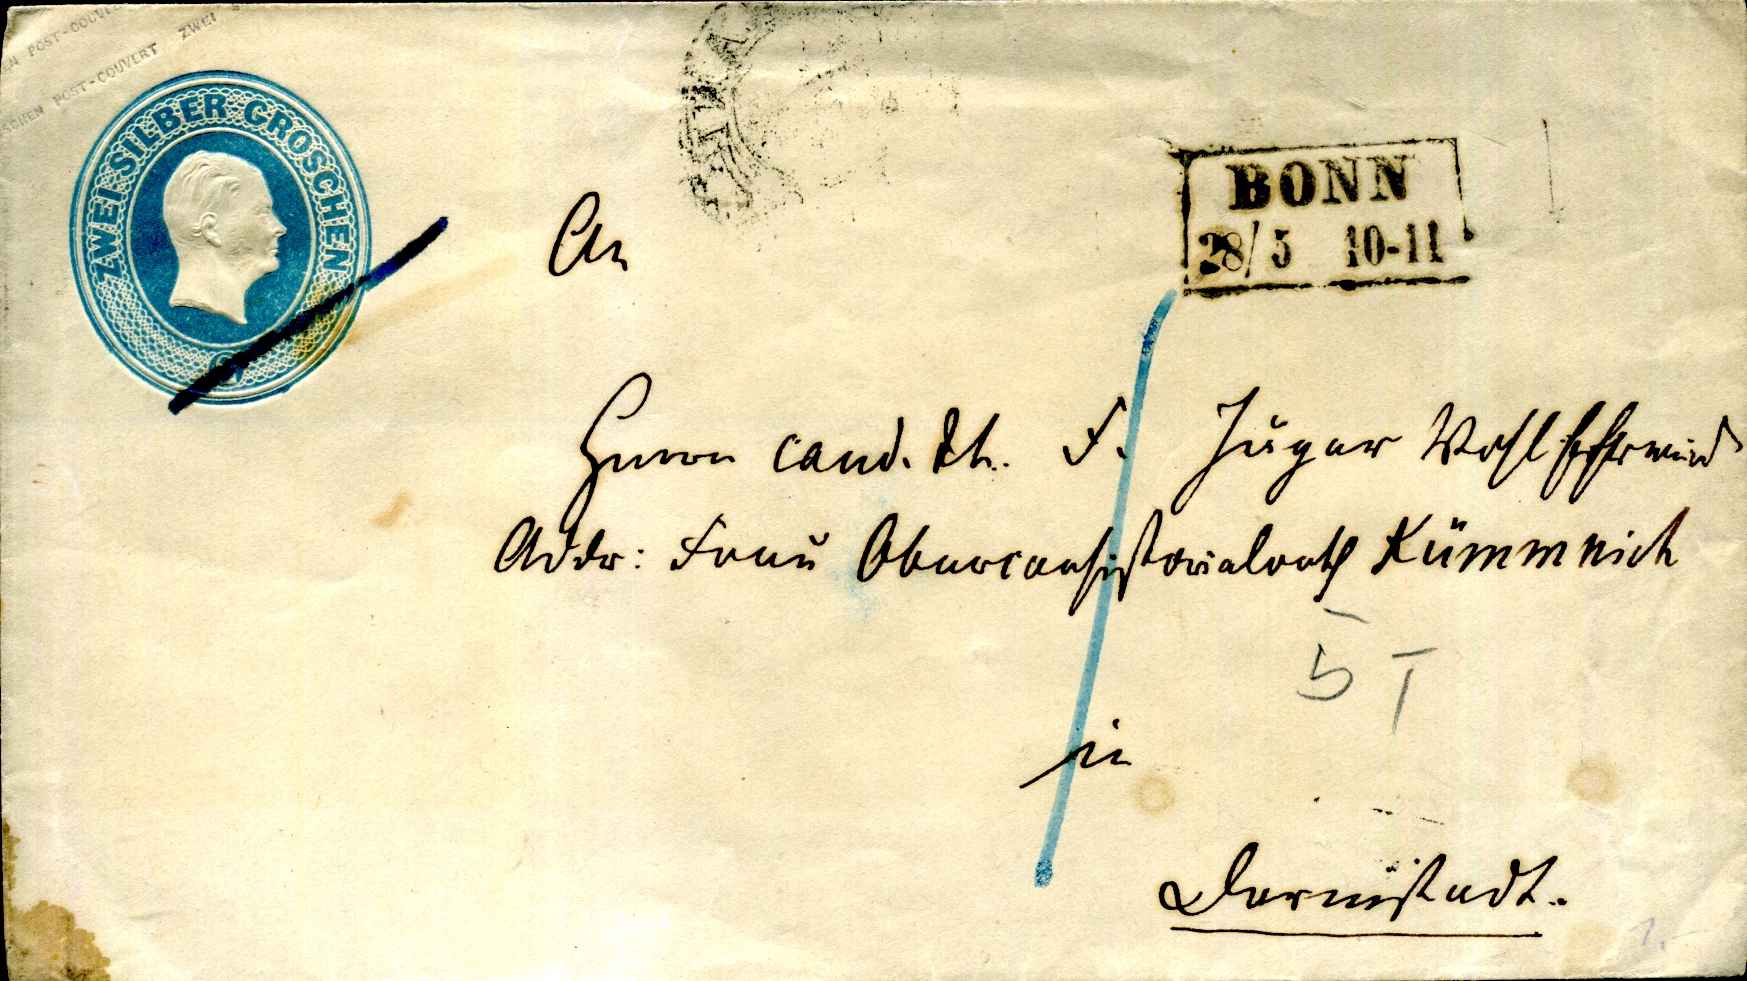 EN POST-COUVE
SCHEN POST-COUVERT ZWEI
ZWEI SILBER GROSCHEN
2
BONN
28/5 10-11
An
Herrn cand. th. F. Jäger
Addr: Frau Oberconsistorialrath Kümmrich
5 T
in
Darmstadt.
1.-